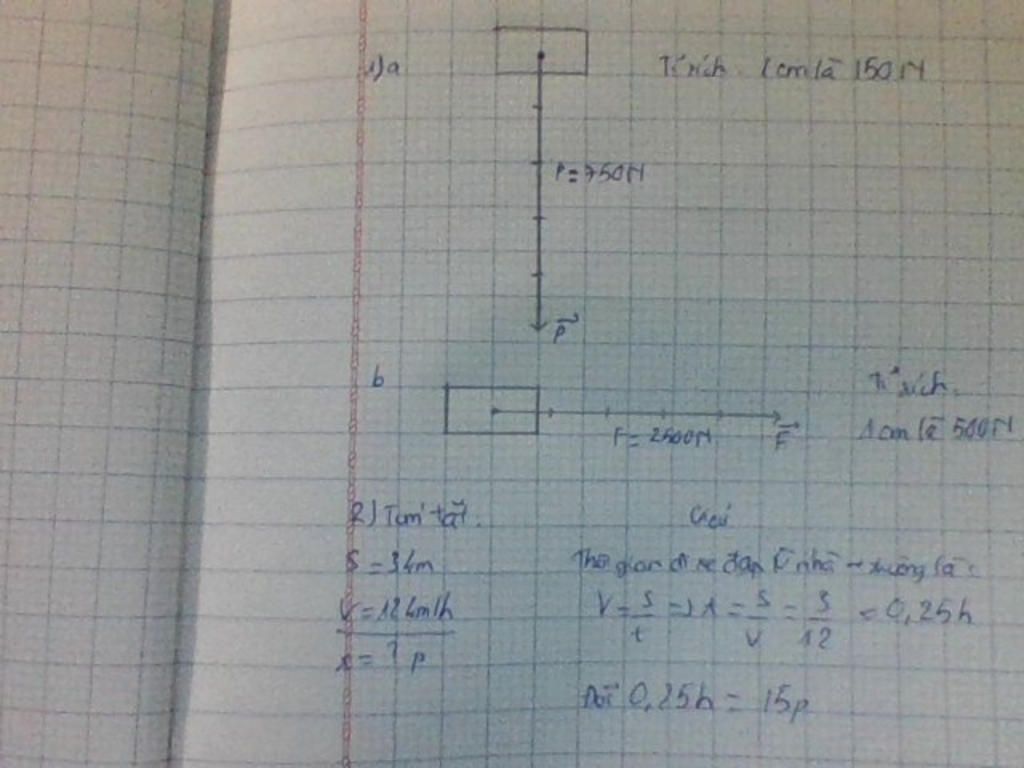 1) a
Tỉ xích. 1cm là 150N
P = 750N
P
b
Tỉ xích.
F = 2500N
F
1cm là 500N
2) Tóm tắt.
Giải
S = 3km
Thời gian đi xe đạp từ nhà → trường là:
V = 12km/h
V = S/t => t = S/V = 3/12 = 0,25h
t = ? p
Đổi 0,25h = 15p